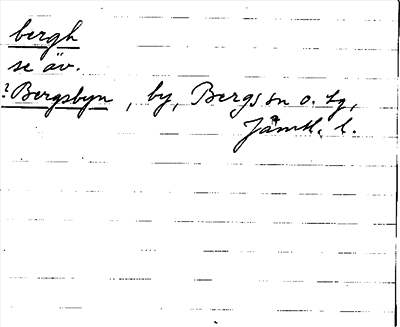 bergh
se äv.
?Bergsbyn, by, Bergs sn o. tg,
Jämtl. l.